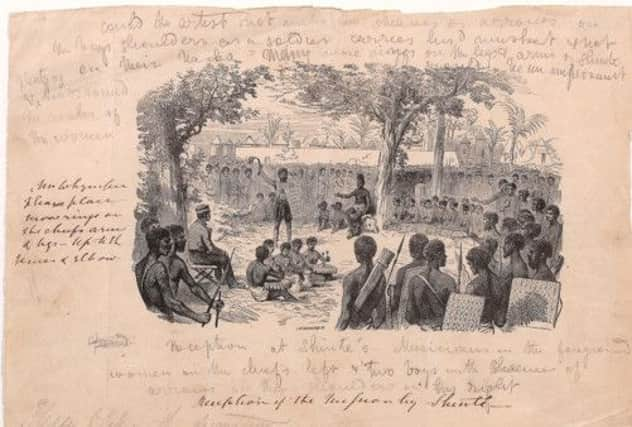 could the artist not make the sheaves of arrows on
the boys shoulders as a soldier carries his musket & not
on their backs - Many more rings on the legs & arms of Shinte
the number of
the women
Mr Whymper
Please place
more rings on
the chiefs arms
& legs - up to the
knees & elbow
Reception at Shinte's Musicians in the foreground
women on the chief's left & two boys with sheaves of
arrows on their shoulders on his right
Reception of the Mission by Shinte